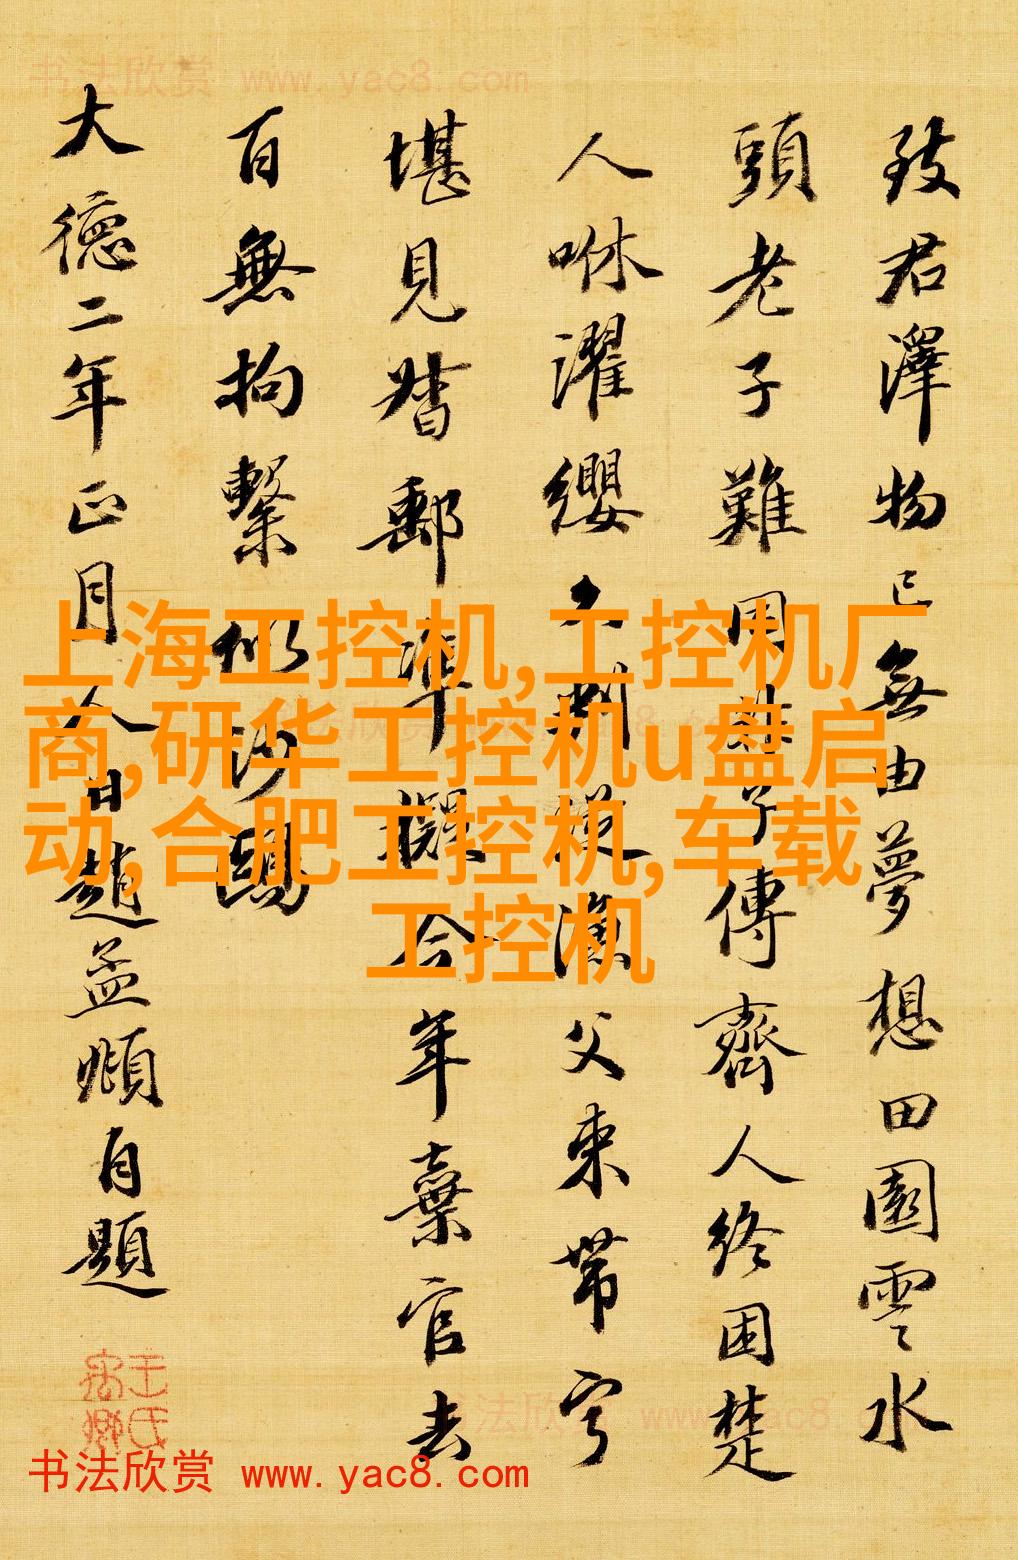 书法欣赏 www.yac8.com
致君澤物已無由夢想田園雲水
頭老子難同非子傳齊人終困楚
人咻濯纓久判從漁父束帶寧
堪見督郵準擬今年棄官去
百無拘繫似沙鷗
大德二年正月人日趙孟頫自題
上海工控机,工控机厂
商,研华工控机u盘启
动,合肥工控机,车载
工控机
书法欣赏 www.yac8.com
书法欣赏 www.yac8.com